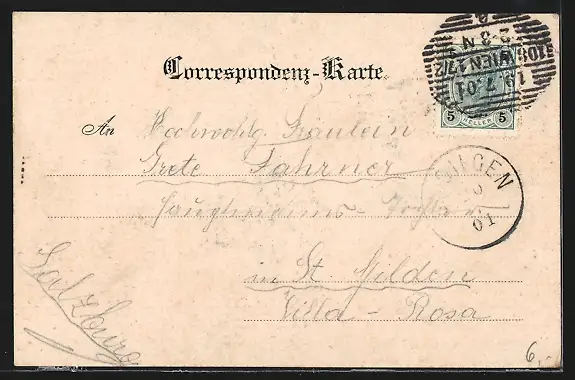 Correspondenz-Karte.
An Hochwohlg. Fräulein
Grete Fahrner
Hauptmanns-Tochter
in St. Gilgen
Villa-Rosa
Salzburg
WIEN 1/2
19 7.01
5 HELLER 5
GILGEN
01
6,-